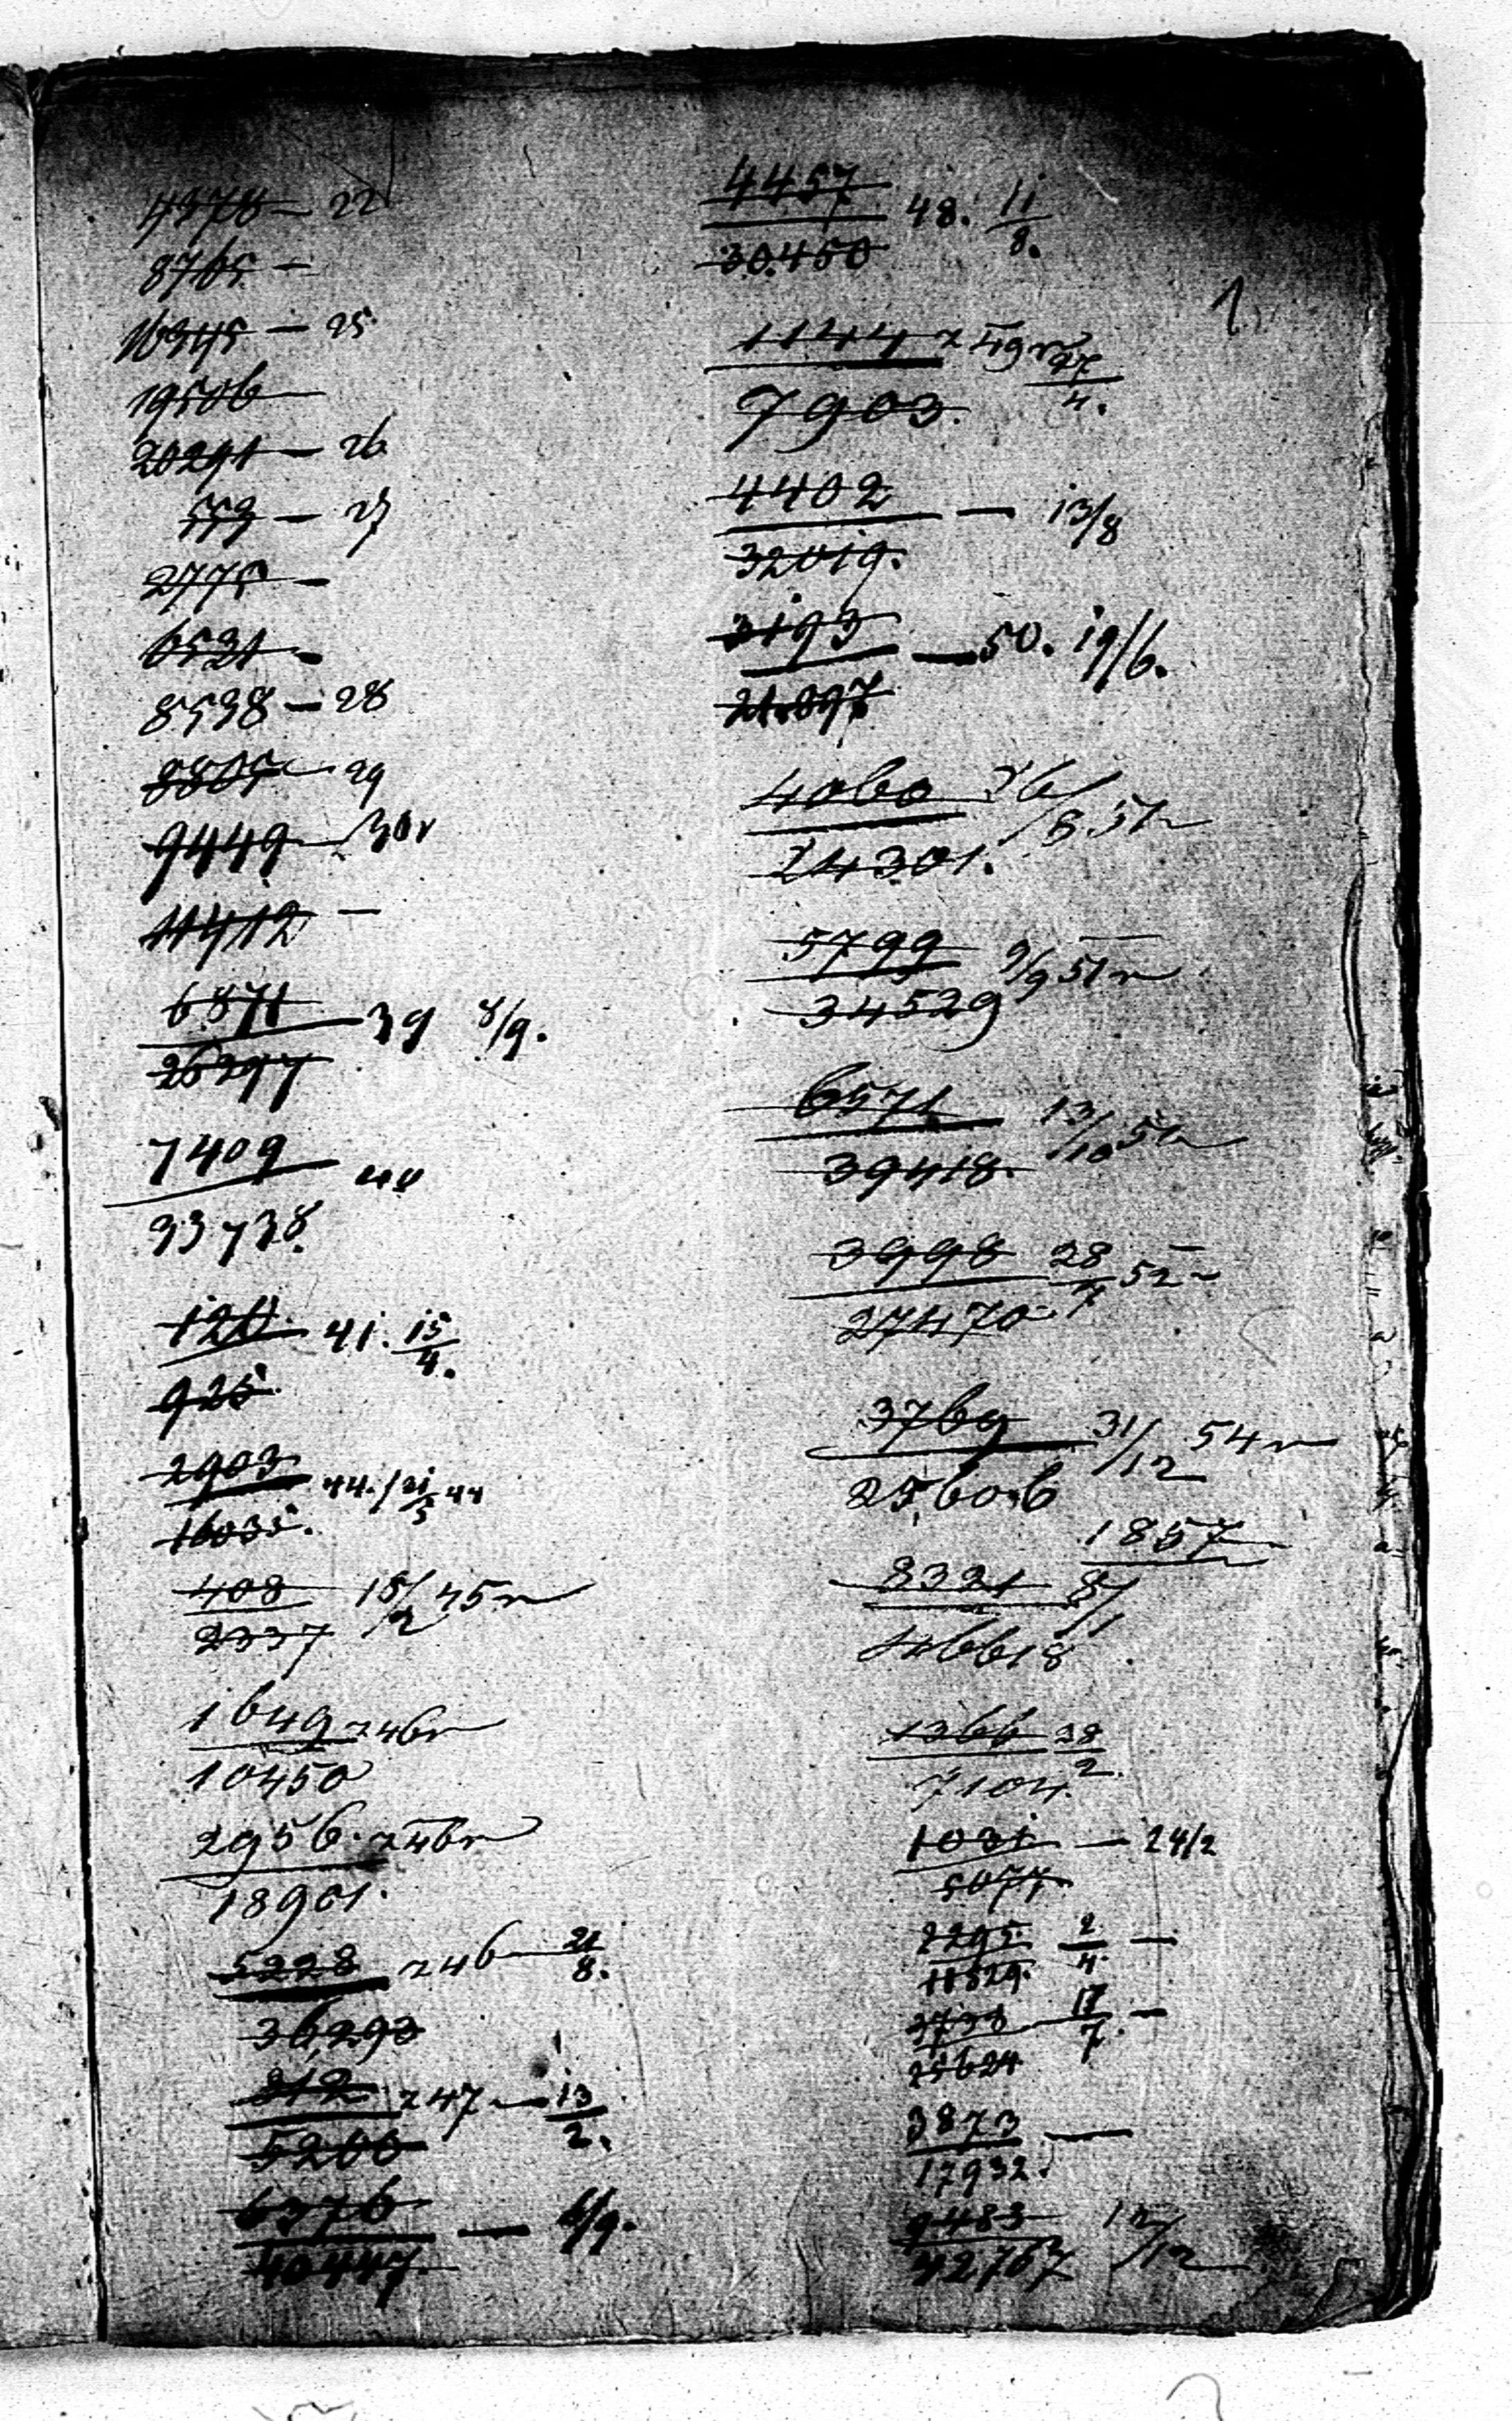 4378 — 22
8765 —
16345 — 25
19506 —
20291 — 26
773 — 27
2775 —
6521 —
8538 — 28
8805 — 29
9449 — 30г
11412 —
6871 — 39 8/9.
26297
7409 — 40
33738.
120. 41. 15/4.
925.
2903 44. 21/3 44
16035.
408 15/2 45г
2337
1649 746г
10450
2956. 746г
18901.
5228 746 — 21/8.
36,293
812 747 — 13/2.
5200
6376 — 6/9.
40447
4457 48. 11/8.
30450
1
1144 49г 27/4.
7903.
4402 — 13/8
32019.
3193 — 50. 19/6.
21.097
4060 26/8 51г
24301.
5799 9/9 51г
34529
6571 13/10 51г
39418.
3998 28/7 52г
27470
3769 31/12 54г
25,606
1857
8321 8/1
46618
1366 28/2.
7104.
1031 — 24/2
5077
2295. 2/4. —
11529.
3738 17/7. —
25624
3873 —
17932.
9483 12/12
42767